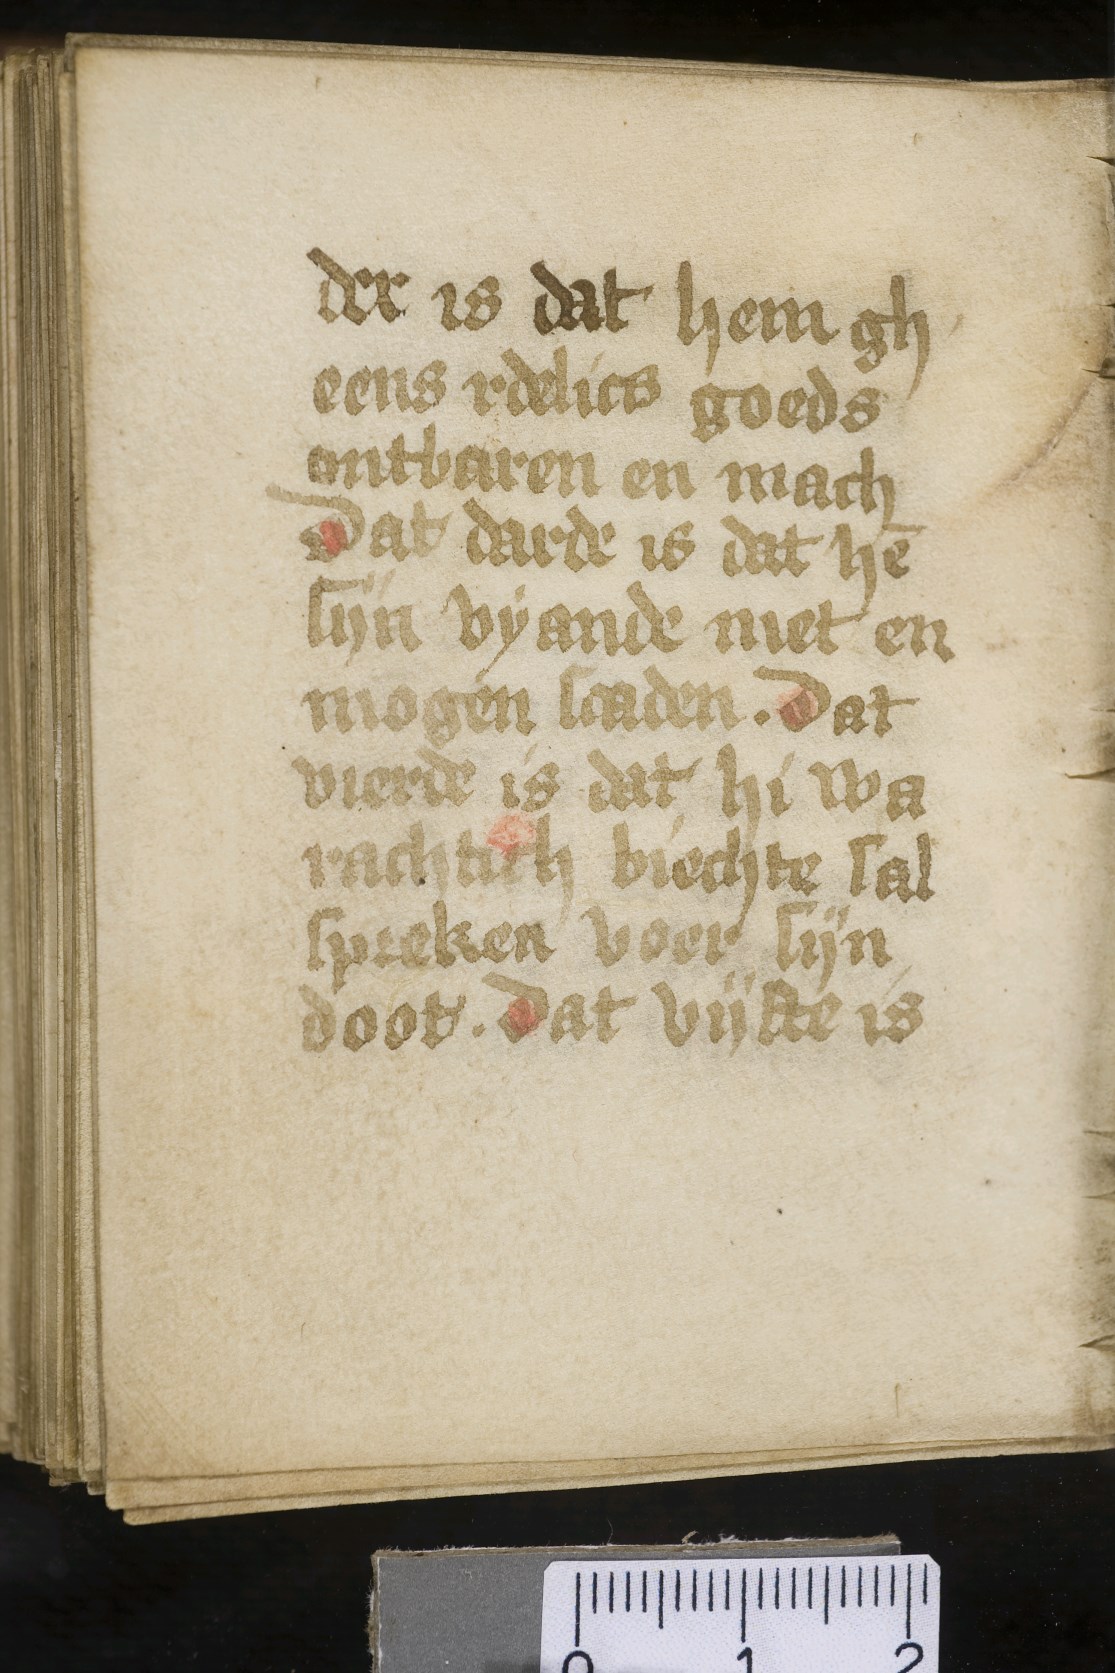 der is dat hem gh
eens rdelics goeds
ontbaren en mach
Dat darde is dat hē
sijn vyande niet en
mogen scaden. Dat
vierde is dat hi wa
rachtich biechte sal
spreken voer sijn
doot. Dat vijfte is
0 1 2